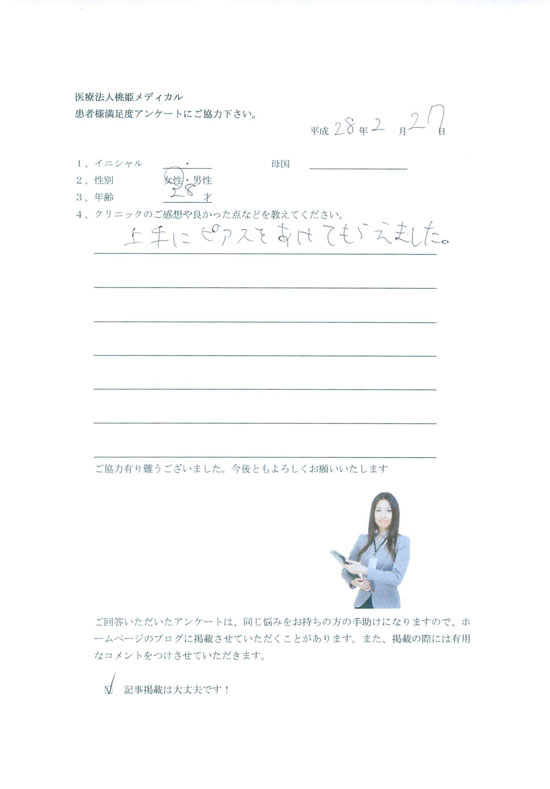 医療法人桃姫メディカル
患者様満足度アンケートにご協力下さい。
平成 28 年 2 月 27 日
1、イニシャル ・ 母国
2、性別 女性・男性
3、年齢 28 才
4、クリニックのご感想や良かった点などを教えてください。
上手にピアスをあけてもらえました。
ご協力有り難うございました。今後ともよろしくお願いいたします
ご回答いただいたアンケートは、同じ悩みをお持ちの方の手助けになりますので、ホ
ームページのブログに掲載させていただくことがあります。また、掲載の際には有用
なコメントをつけさせていただきます。
☑ 記事掲載は大丈夫です！